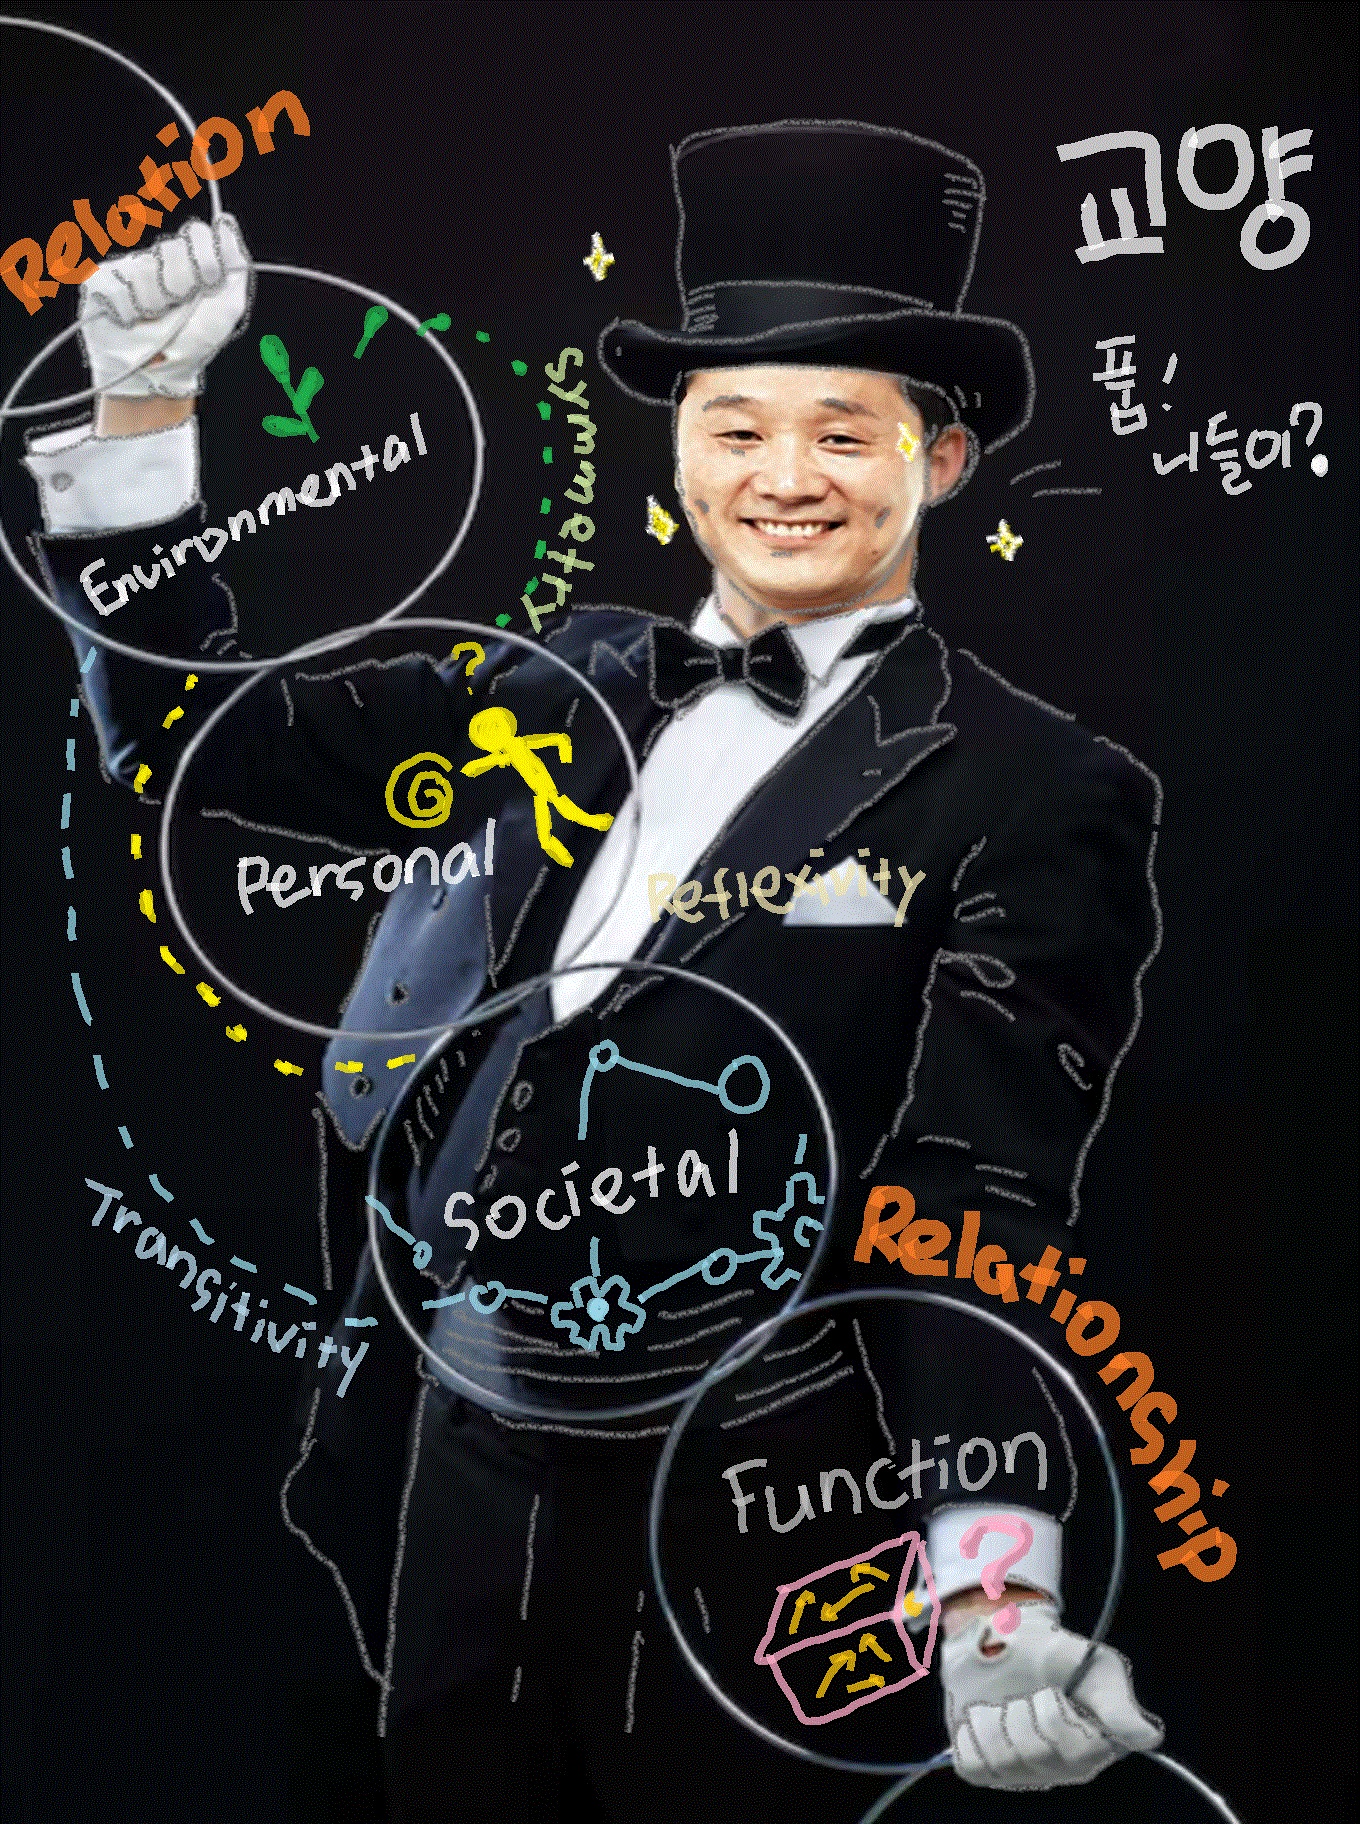 Relation
교양
품!
니들이?
Symmetry
Environmental
?
G
Personal
Reflexivity
Societal
Transitivity
Relationship
Function
?